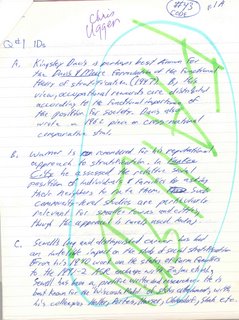 Chris
Uggen
#43
Code
p. 1A
Q#1 IDs
A. Kingsley Davis is perhaps best known for
the Davis & Moore formulation of the functional
theory of stratification (1945). In this
view, occupational rewards are distributed
according to the functional importance of
the position for society. Davis also
wrote a 1962 piece on cross-national
comparative
B. Warner is remembered for his reputational
approach to stratification. In Yankee
City he assessed the relative
position of individuals & families by asking
their neighbors to rate them. Such
community level studies are particularly
relevant for smaller towns and cities,
though the approach is rarely used today.
C. Sewell's long and distinguished career has had
an indelible impact on the study of social stratification
From his 1940 work on the status of farm families
to the 1971-2 ASR exchange with
Sewell has been a prolific writer and researcher. He is
best known for the Wisconsin model of status attainment, with
his colleagues Haller, Portes, Hauser, Shah etc.